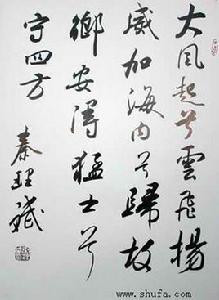 大风起兮雲飛揚
威加海内兮歸故
鄉安得猛士兮
守四方
秦理斌
www.shufa.com